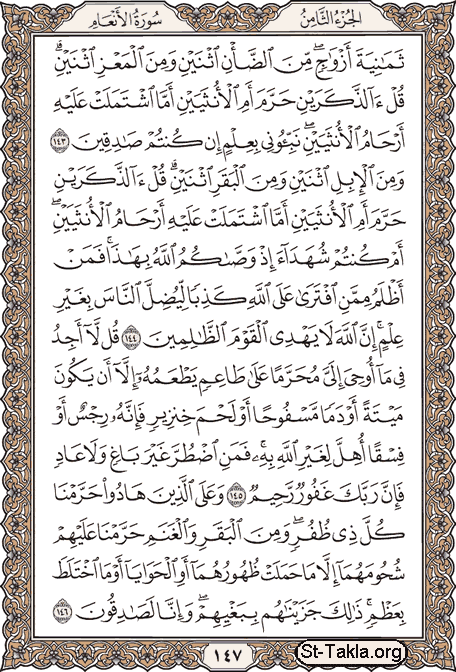 الجزء الثامن
سورة الأنعام
ثَمَٰنِيَةَ أَزْوَٰجٍۖ مِّنَ ٱلضَّأْنِ ٱثْنَيْنِ وَمِنَ ٱلْمَعْزِ ٱثْنَيْنِۗ
قُلْ ءَآلذَّكَرَيْنِ حَرَّمَ أَمِ ٱلْأُنثَيَيْنِ أَمَّا ٱشْتَمَلَتْ عَلَيْهِ
أَرْحَامُ ٱلْأُنثَيَيْنِۖ نَبِّـُٔونِى بِعِلْمٍ إِن كُنتُمْ صَٰدِقِينَ ١٤٣
وَمِنَ ٱلْإِبِلِ ٱثْنَيْنِ وَمِنَ ٱلْبَقَرِ ٱثْنَيْنِۗ قُلْ ءَآلذَّكَرَيْنِ
حَرَّمَ أَمِ ٱلْأُنثَيَيْنِ أَمَّا ٱشْتَمَلَتْ عَلَيْهِ أَرْحَامُ ٱلْأُنثَيَيْنِۖ
أَمْ كُنتُمْ شُهَدَآءَ إِذْ وَصَّىٰكُمُ ٱللَّهُ بِهَٰذَاۚ فَمَنْ
أَظْلَمُ مِمَّنِ ٱفْتَرَىٰ عَلَى ٱللَّهِ كَذِبًا لِّيُضِلَّ ٱلنَّاسَ بِغَيْرِ
عِلْمٍۗ إِنَّ ٱللَّهَ لَا يَهْدِى ٱلْقَوْمَ ٱلظَّٰلِمِينَ ١٤٤ قُل لَّآ أَجِدُ
فِى مَآ أُوحِىَ إِلَىَّ مُحَرَّمًا عَلَىٰ طَاعِمٍ يَطْعَمُهُۥٓ إِلَّآ أَن يَكُونَ
مَيْتَةً أَوْ دَمًا مَّسْفُوحًا أَوْ لَحْمَ خِنزِيرٍ فَإِنَّهُۥ رِجْسٌ أَوْ
فِسْقًا أُهِلَّ لِغَيْرِ ٱللَّهِ بِهِۦۚ فَمَنِ ٱضْطُرَّ غَيْرَ بَاغٍ وَلَا عَادٍ
فَإِنَّ رَبَّكَ غَفُورٌ رَّحِيمٌ ١٤٥ وَعَلَى ٱلَّذِينَ هَادُوا۟ حَرَّمْنَا
كُلَّ ذِى ظُفُرٍۖ وَمِنَ ٱلْبَقَرِ وَٱلْغَنَمِ حَرَّمْنَا عَلَيْهِمْ
شُحُومَهُمَآ إِلَّا مَا حَمَلَتْ ظُهُورُهُمَآ أَوِ ٱلْحَوَايَآ أَوْ مَا ٱخْتَلَطَ
بِعَظْمٍۚ ذَٰلِكَ جَزَيْنَٰهُم بِبَغْيِهِمْۖ وَإِنَّا لَصَٰدِقُونَ ١٤٦
١٤٧
St-Takla.org